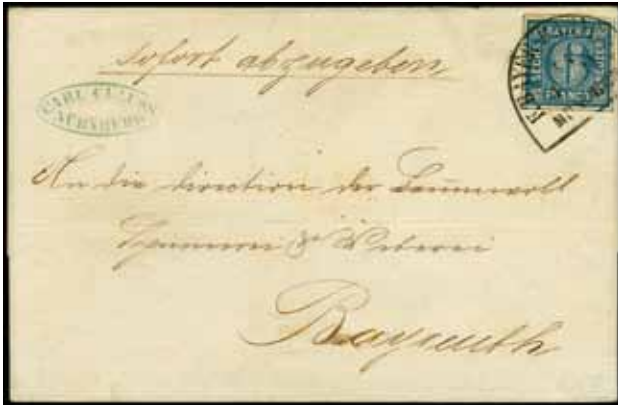 sofort abzugeben
CARL
NÜRNBERG
An die Direction der Baumwoll
Spinnerei & Weberei
Bayreuth